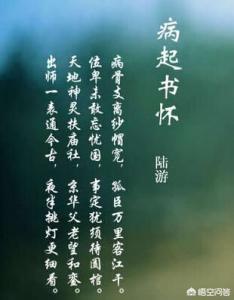 病起书怀
陆游
病骨支离纱帽宽，孤臣万里客江干。
位卑未敢忘忧国，事定犹须待阖棺。
天地神灵扶庙社，京华父老望和銮。
出师一表通今古，夜半挑灯更细看。
悟空问答